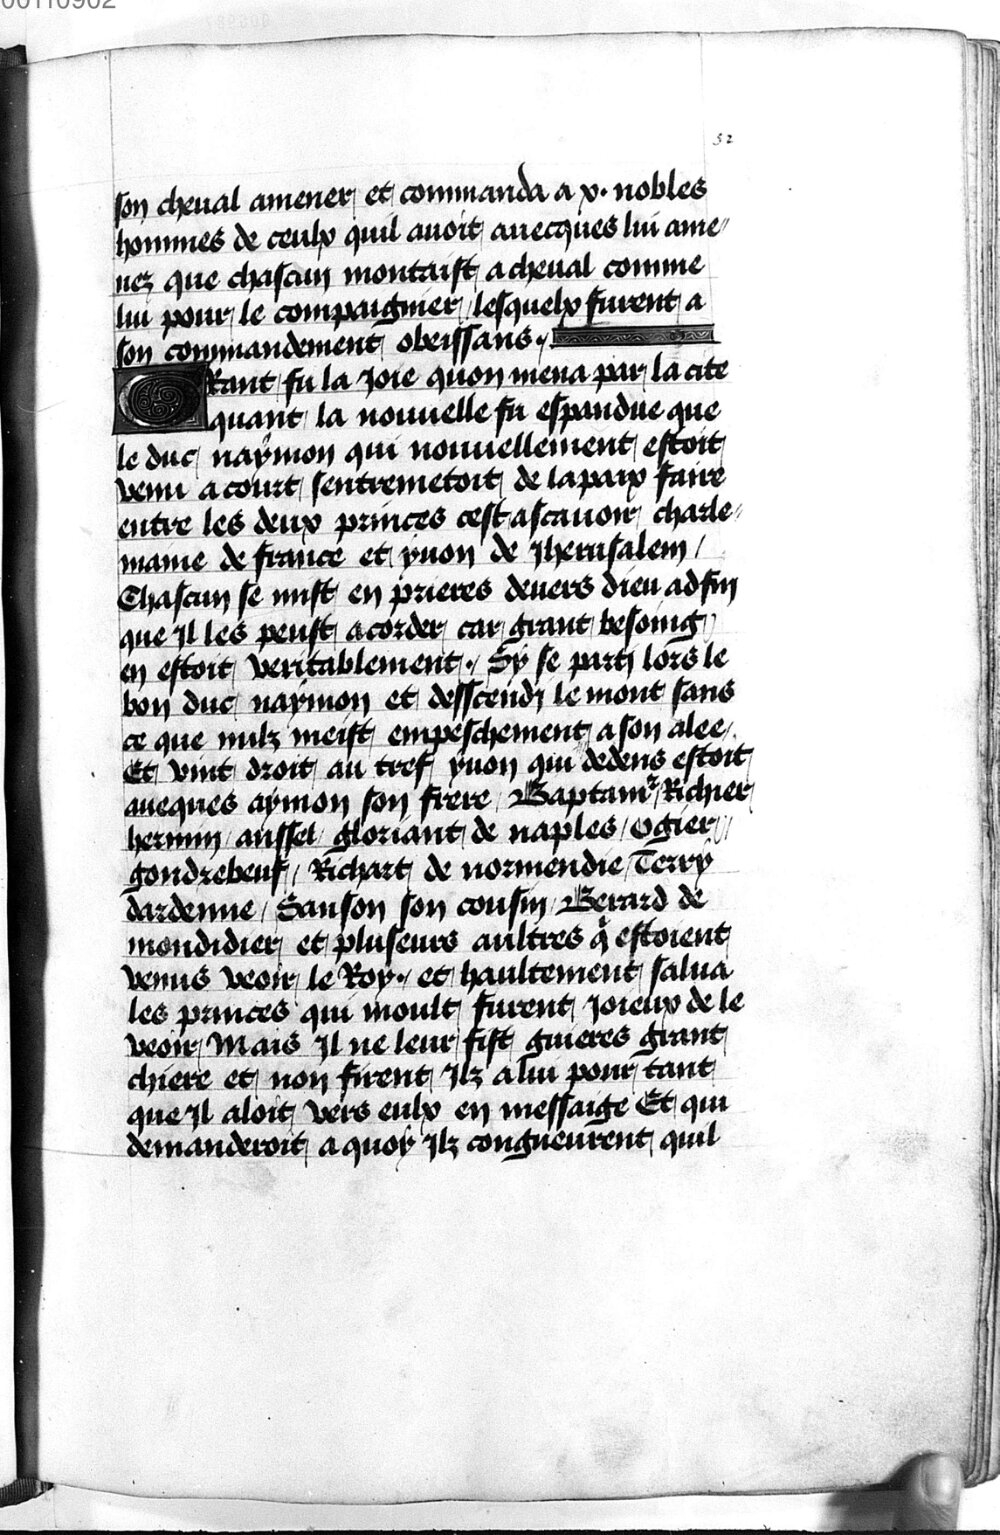 00110902
52
son cheual amener et commanda a x. nobles
hommes de ceulx quil auoit auecques lui ame/
nez que chascun montaist a cheual comme
lui pour le compaignier / lesquelx furent a
son commandement obeissans .
Grant fu la Joie quon mena par la cite
quant la nouuelle fu espandue que
le duc naÿmon qui nouuellement estoit
venu a court sentremetoit de la paix faire
entre les deux princes cest ascauoir charle/
maine de france et ÿuon de Jherusalem /
Chascun se mist en prieres deuers dieu adfin
que Jl les peust acorder car grant besoing
en estoit veritablement . Sÿ se parti lors le
bon duc naÿmon et desscendi le mont sans
ce que nulz meist empeschement a son alee /
Et vint droit au tref ÿuon qui dedens estoit
aueques aÿmon son frere / Baptamr / Richier
hermin / aussel / gloriant de naples / Ogier /
gondrebeuf / Richart de normendie / Terrÿ
dardenne / Sanson son cousin / Berard de
mondidier et pluseurs aultres q̄ estoient
venus veoir le Roy . et haultement salua
les princes qui moult furent Joieux de le
veoir / Mais Jl ne leur fist guieres grant
chiere et non firent Jlz a lui pour tant
que Jl aloit vers eulx en messaige Et qui
demanderoit a quoy Jlz congneurent quil